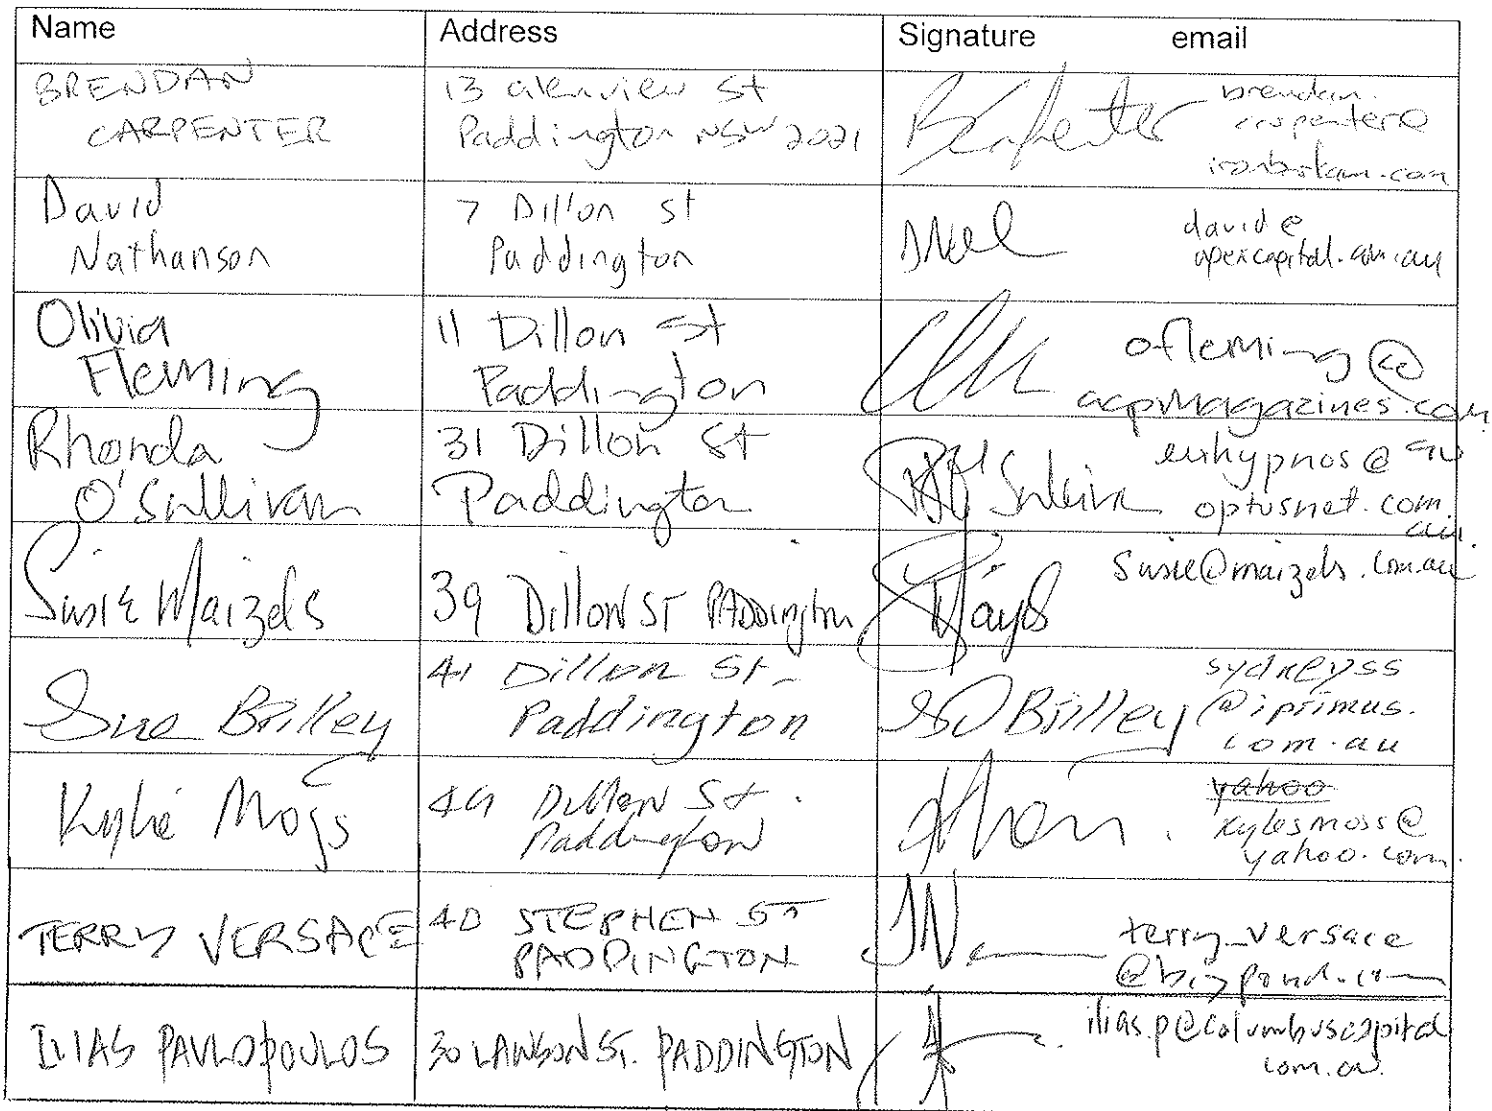 Name Address Signature email
BRENDAN
CARPENTER
13 Glenview St
Paddington NSW 2021
brendan.
David
Nathanson
7 Dillon st
Paddington
david@
apexcapital.com.au
Olivia
Fleming
11 Dillon St
Paddington
ofleming@
acpmagazines.com
Rhonda
O'Sullivan
31 Dillon St
Paddington
@
optusnet.com.
au.
Susie Maizels
39 Dillon ST PADDington
Susie@maizels.com.au
Sue Brilley
41 Dillon St
Paddington
SD Brilley
sydneyss
@iprimus.
com.au
Kylie Moss
49 Dillon St.
Paddington
yahoo
kylesmoss@
yahoo.com.
TERRY VERSACE
40 STEPHEN ST
PADDINGTON
terry_versace
ILIAS PAVLOPOULOS
30 LAWSON ST. PADDINGTON
ilias.p@columbuscapital
com.au.